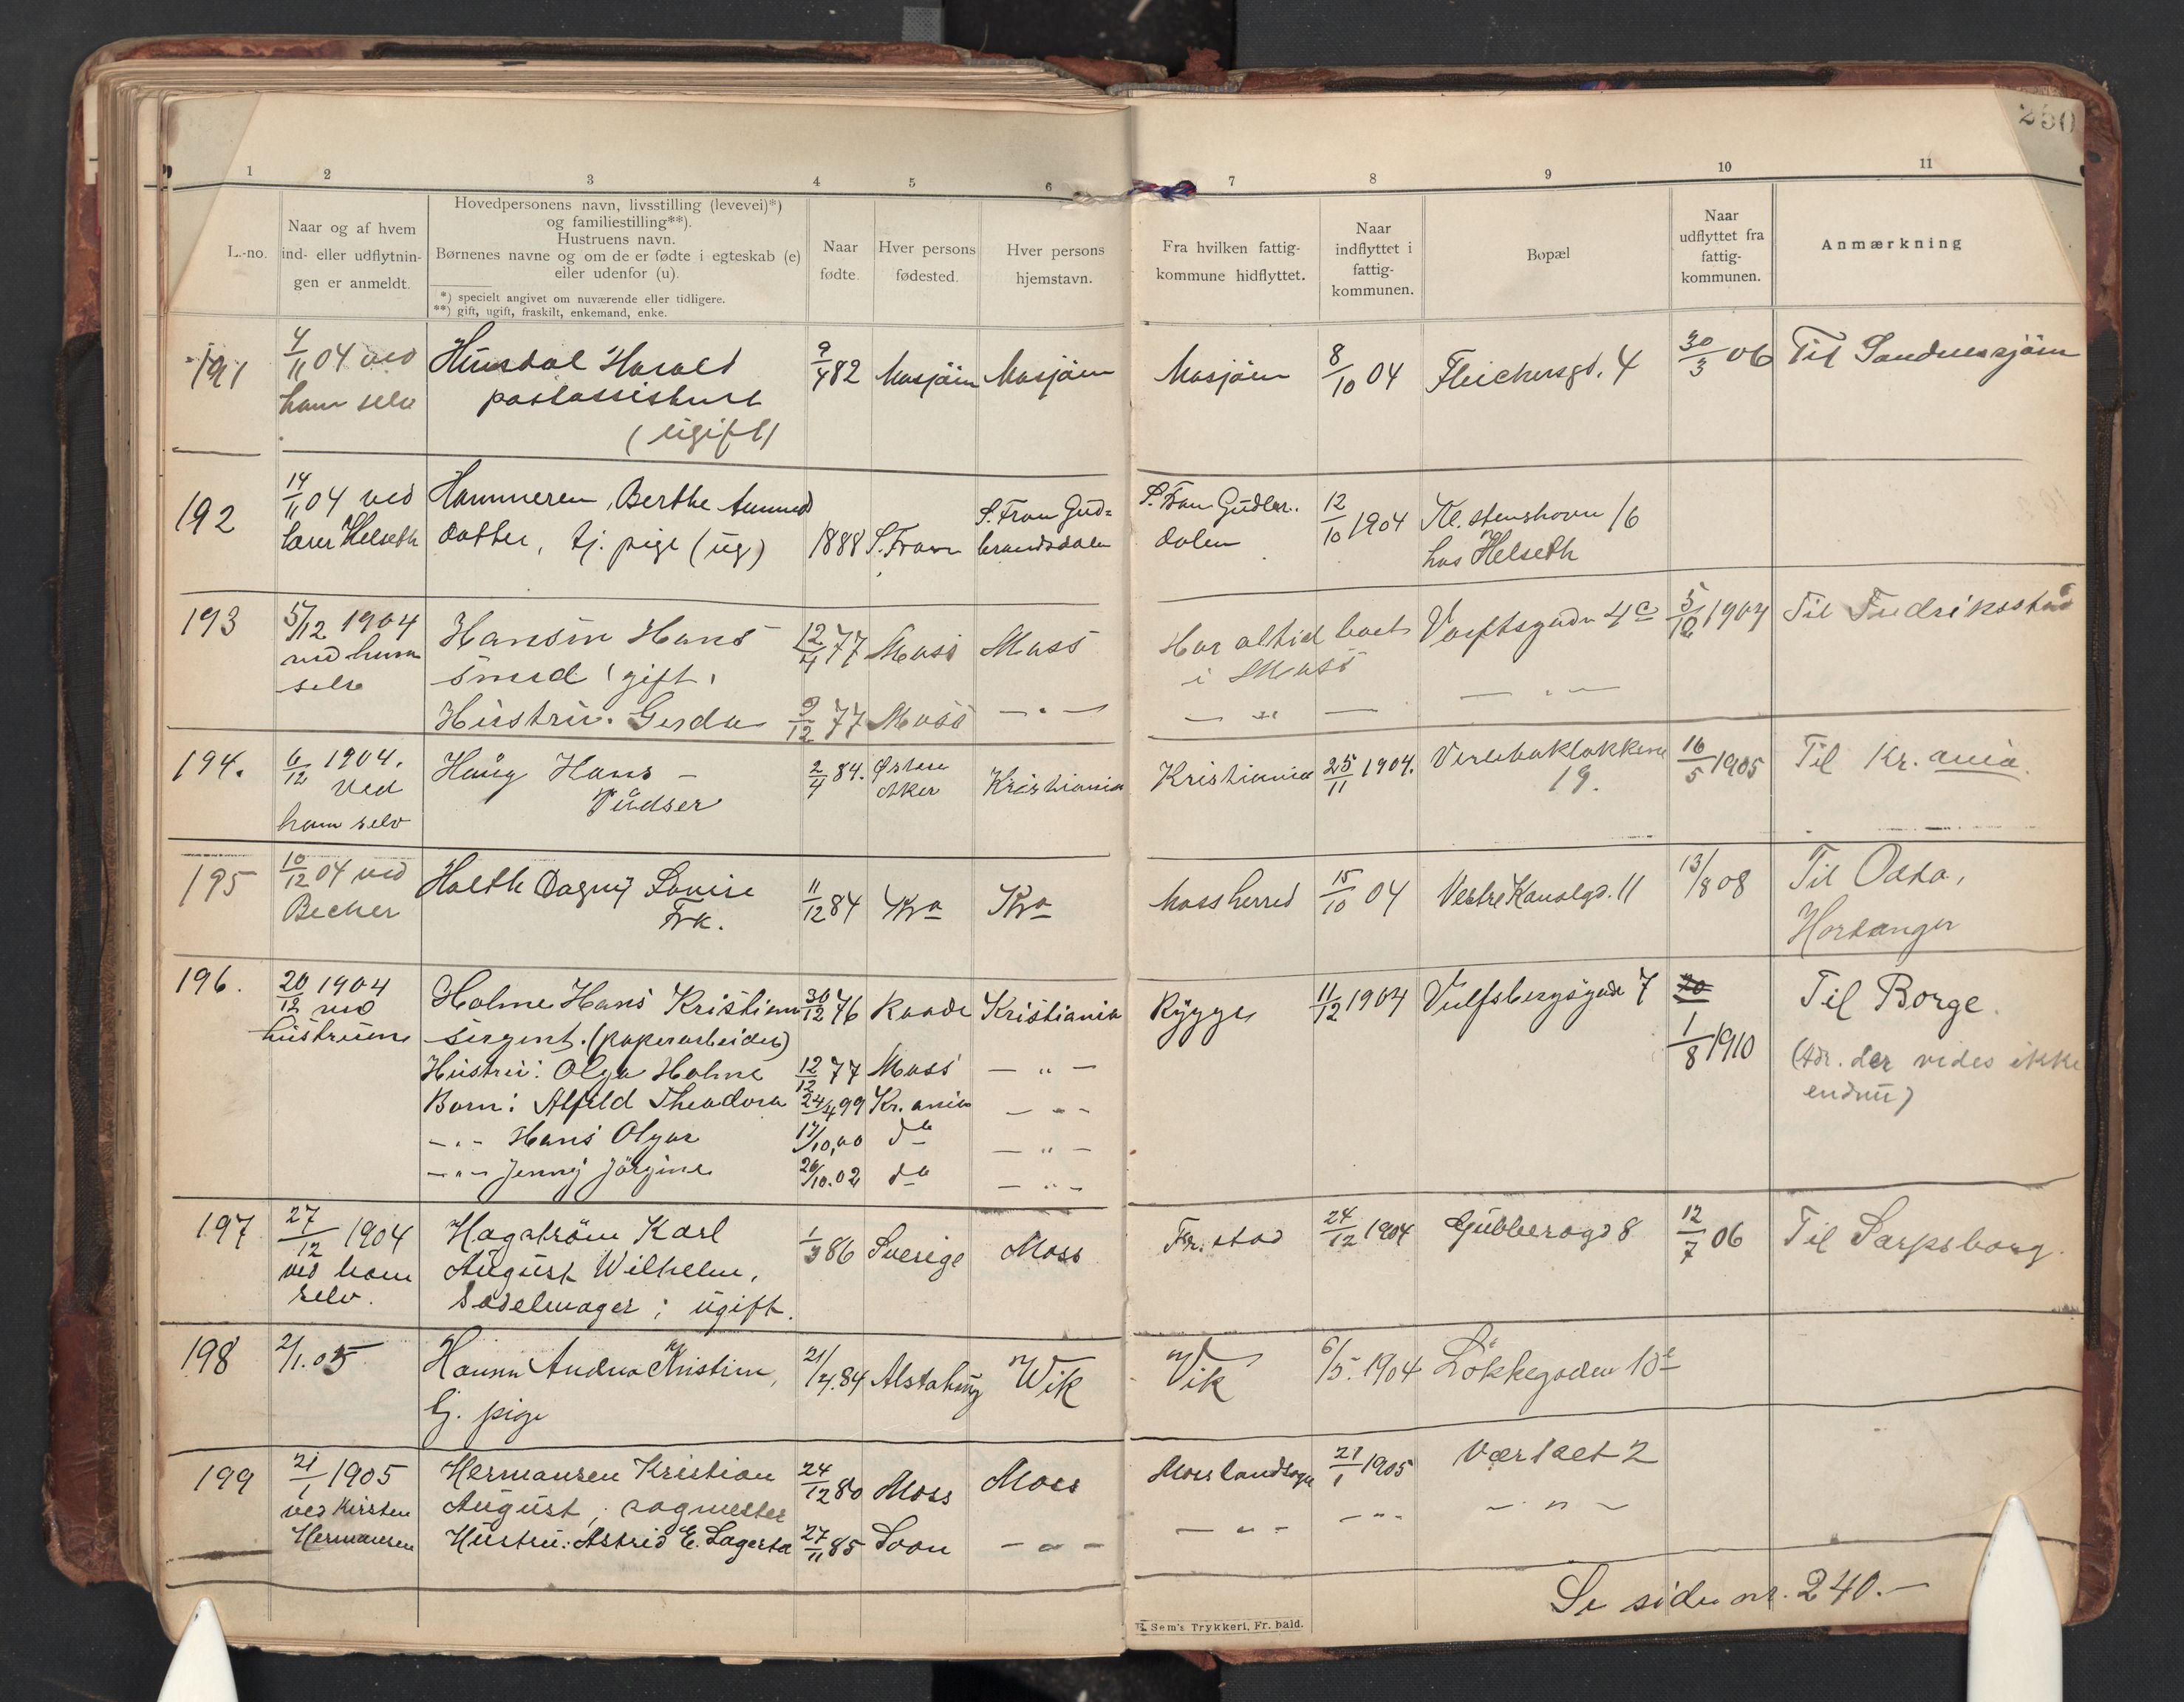 250
1 2 3 4 5 6 7 8 9 10 11
L.-no.
Naar og af hvem
ind- eller udflytnin-
gen er anmeldt.
Hovedpersonens navn, livsstilling (levevei)*)
og familiestilling**).
Hustruens navn.
Børnenes navne og om de er fødte i egteskab (e)
eller udenfor (u).
*) specielt angivet om nuværende eller tidligere.
**) gift, ugift, fraskilt, enkemand, enke.
Naar
fødte.
Hver persons
fødested.
Hver persons
hjemstavn.
Fra hvilken fattig-
kommune hidflyttet.
Naar
indflyttet i
fattig-
kommunen.
Bopæl
Naar
udflyttet fra
fattig-
kommunen.
Anmærkning
191
4/11 04 ved
ham selv
Husdal Harald
postassistent
(ugift)
9/4 82
Mosjøen
Mosjøen
Mosjøen
8/10 04
Fleichersgd. 4
30/3 06
Til Sandnessjøen
192
14/11 04 ved
lærer Helseth
Hammeren, Berthe Amund
datter, tj. pige (ug)
1888
S. Fron
S. Fron Gud=
brandsdalen
S. Fron Gudbr.
dalen
12/10 1904
Kl. stenshovn 16
hos Helseth
193
5/12 1904
ved ham
selv
Hansen Hans
smed (gift)
Hustru. Gerda
12/4 77
9/12 77
Moss
Moss
Moss
— " —
Har altid boet
i Moss
— " —
Værftsgaden 4c
— " —
5/12 1904
Til Fredriksstad
194.
6/12 1904.
ved
ham selv
Haug Hans —
Pudser
2/4 84.
Østere
Aker
Kristiania
Kristiania
25/11 1904.
Verlebakløkken
19.
16/5 1905
Til Kr. ania.
195
10/12 04 ved
Becker
Holth Dagny Lovise
Frk.
11/12 84
Kra
Kra
Moss herred
15/10 04
Vestre Kanalgd. 11
13/8 08
Til Odda,
Hardanger
196.
20/12 1904
ved
hustruen
Holme Hans Kristian
sergent. (papirarbeider)
Hustru: Olga Holme
Barn: Alfild Theodora
— " — Hans Olgar
— " — Jenny Jørgine
30/12 76
12/12 77
24/4 99
17/10.00
26/10.02
Raade
Moss
Kr. ania
do
do
Kristiania
— " —
— " —
— " —
— " —
Rygge
11/12 1904
Vulfsbergsgade 7
20
1/8 1910
Til Borge.
(Adr. der vides ikke
endnu)
197
27/12 1904
ved ham
selv.
Hagström Karl
August Wilhelm,
Sadelmager; ugift.
1/3 86
Sverige
Moss
Fr. stad
24/12 1904
Gubberogd 8
12/7 06
Til Sarpsborg.
198
2/1.05
Hansen Andrea Kristine,
tj. pige
21/4.84
Alstahaug
Wik
Vik
6/5. 1904
Løkkegaden 10e
199
21/1 1905
ved Kirsten
Hermansen
Hermansen Kristian
August, sagmester
Hustru: Astrid E. Lagerta
24/12 80
27/11 85
Moss
Soon
Moss
— " —
Moss landsogn
— " —
21/1 1905
— " —
Værtaet 2
— " —
Se siden nr. 240.—
E. Sem's Trykkeri, Fr. hald.